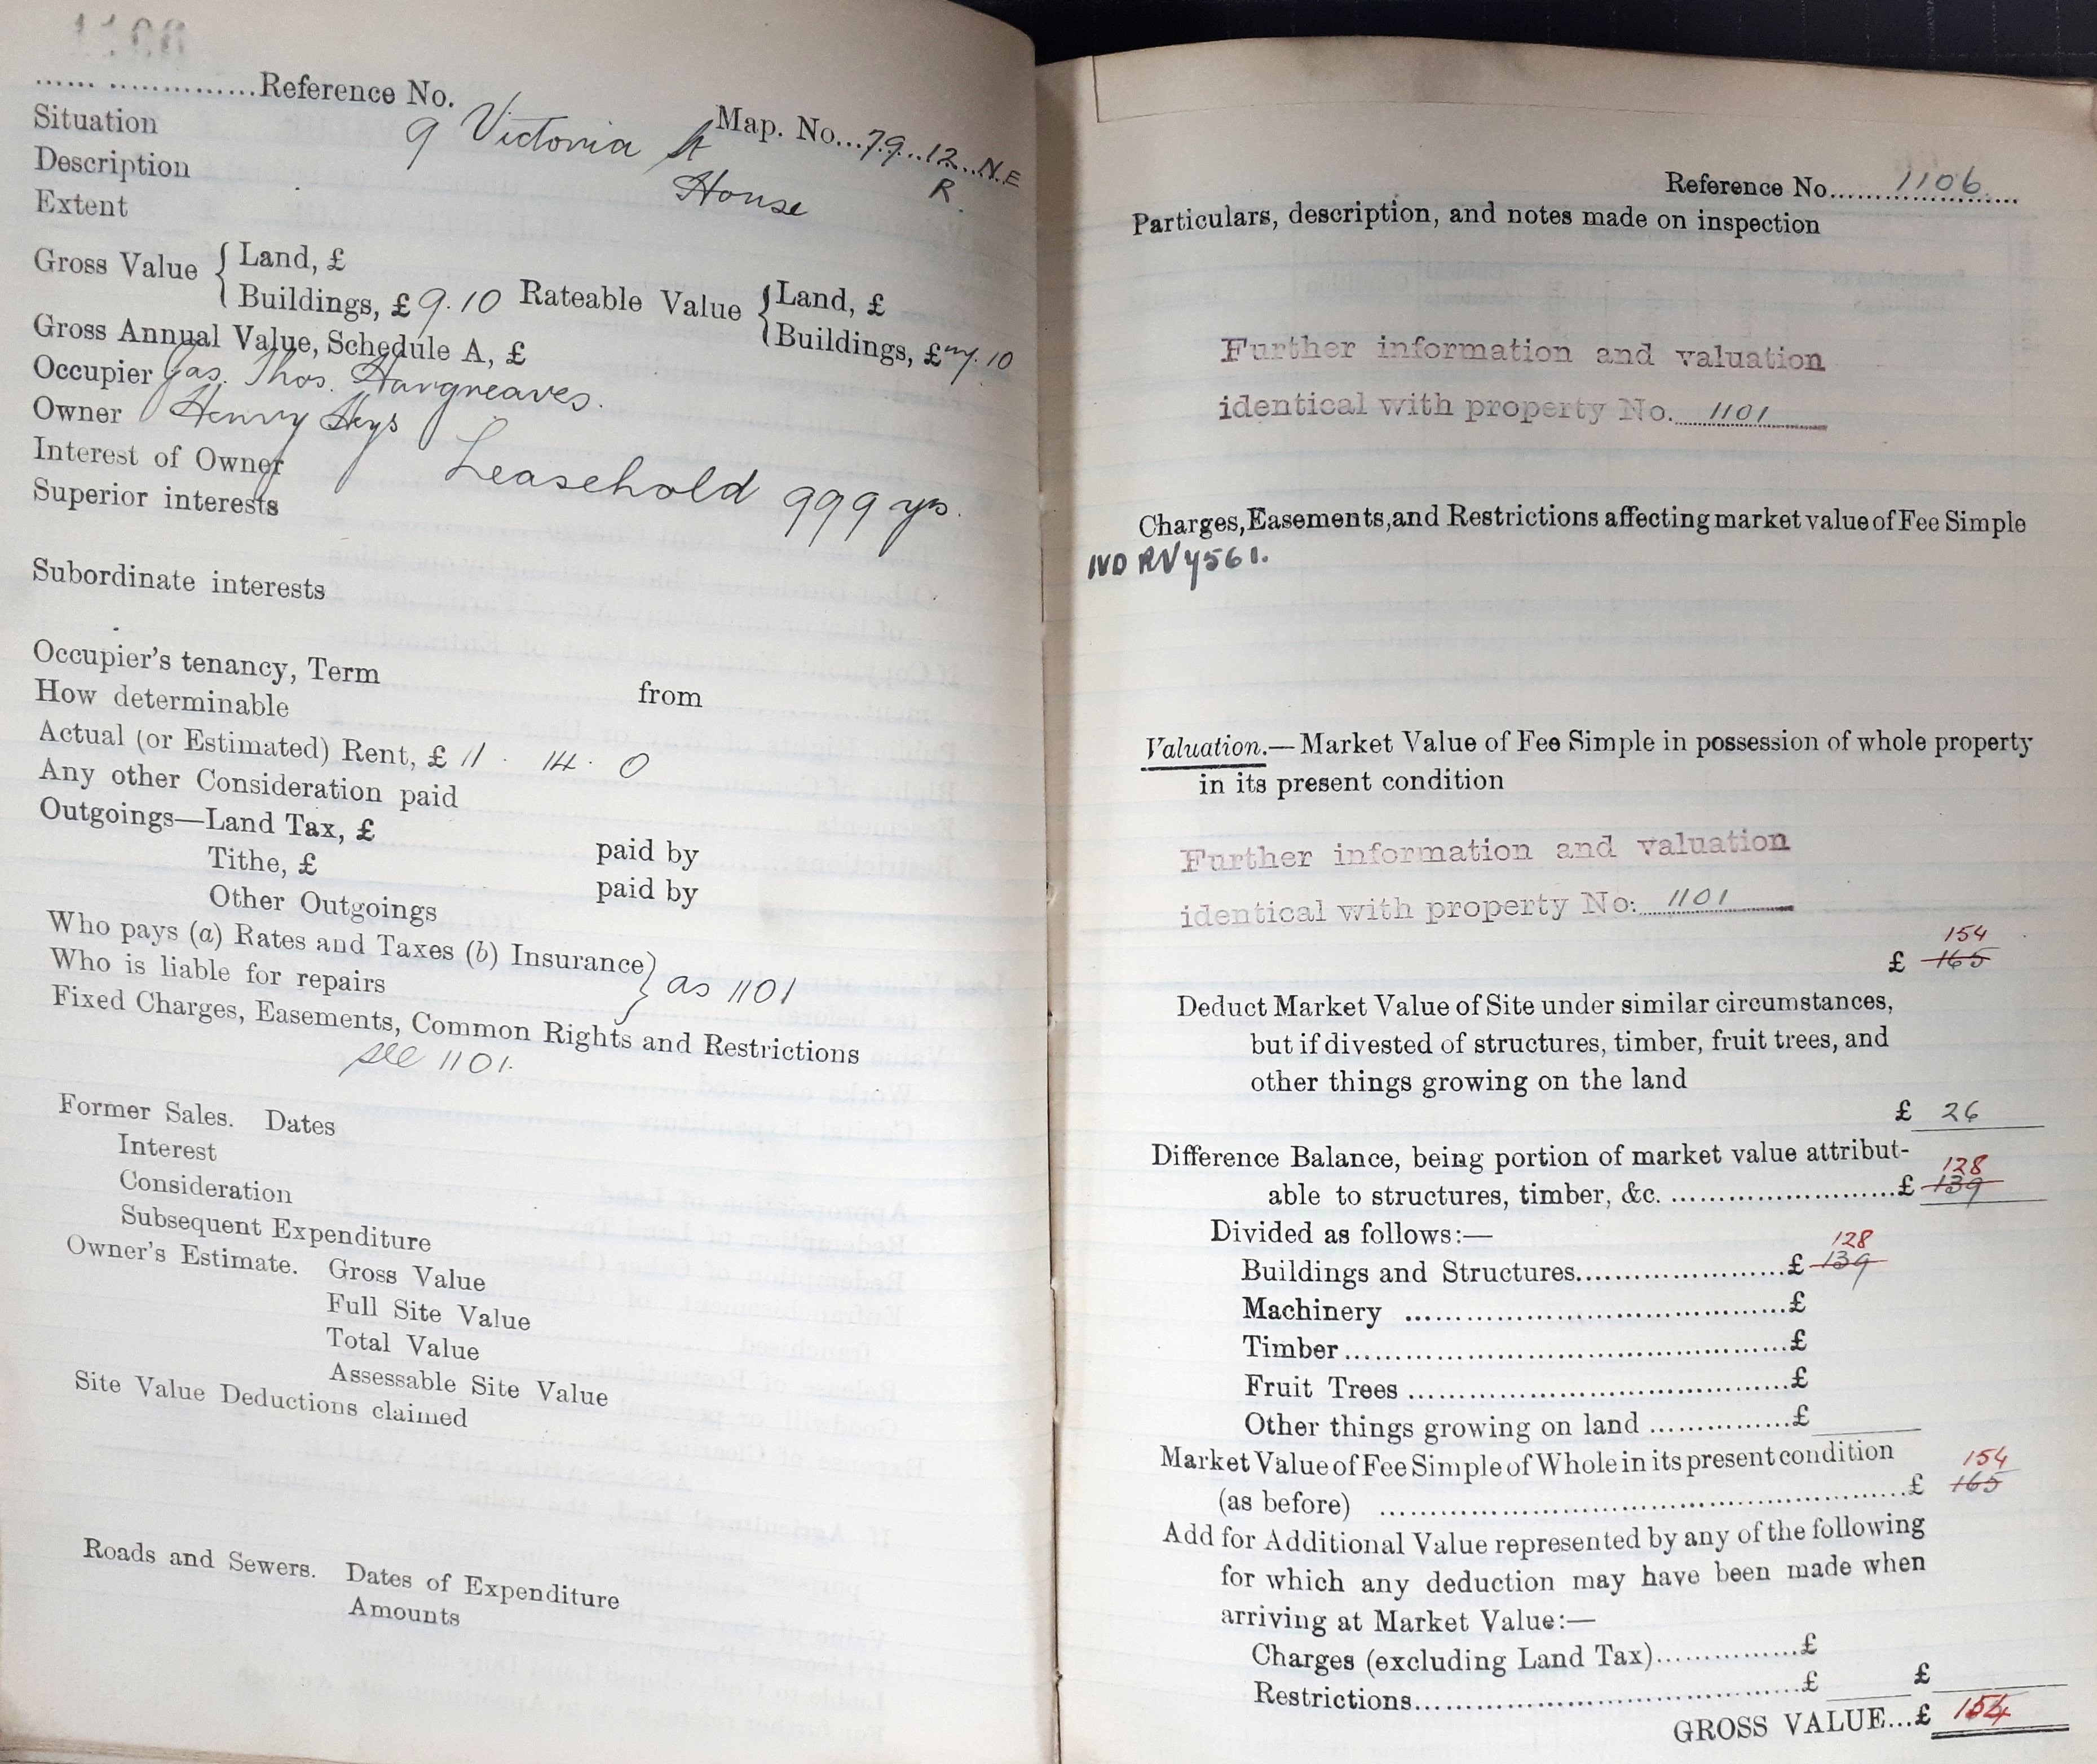 Reference No.
Map. No...79..12..N.E
R.
Situation 9 Victoria St
Description House
Extent
Gross Value { Land, £
Buildings, £ 9.10 Rateable Value { Land, £
Buildings, £ 7.10
Gross Annual Value, Schedule A, £
Occupier Jas. Thos. Hargreaves.
Owner Henry Hys
Interest of Owner Leasehold 999 yrs.
Superior interests
Subordinate interests
Occupier's tenancy, Term from
How determinable
Actual (or Estimated) Rent, £ 11 . 14 . 0
Any other Consideration paid
Outgoings—Land Tax, £ paid by
Tithe, £ paid by
Other Outgoings
Who pays (a) Rates and Taxes (b) Insurance
Who is liable for repairs } as 1101
Fixed Charges, Easements, Common Rights and Restrictions
see 1101.
Former Sales. Dates
Interest
Consideration
Subsequent Expenditure
Owner's Estimate. Gross Value
Full Site Value
Total Value
Assessable Site Value
Site Value Deductions claimed
Roads and Sewers. Dates of Expenditure
Amounts
Reference No. 1106
Particulars, description, and notes made on inspection
Further information and valuation
identical with property No. 1101
Charges, Easements, and Restrictions affecting market value of Fee Simple
IVD RV 4561.
Valuation.—Market Value of Fee Simple in possession of whole property
in its present condition
Further information and valuation
identical with property No: 1101
154
£ 165
Deduct Market Value of Site under similar circumstances,
but if divested of structures, timber, fruit trees, and
other things growing on the land
£ 26
Difference Balance, being portion of market value attribut-
128
able to structures, timber, &c. £ 139
Divided as follows:—
128
Buildings and Structures £ 139
Machinery £
Timber £
Fruit Trees £
Other things growing on land £
Market Value of Fee Simple of Whole in its present condition
154
(as before) £ 165
Add for Additional Value represented by any of the following
for which any deduction may have been made when
arriving at Market Value:—
Charges (excluding Land Tax) £
Restrictions £ £
GROSS VALUE...£ 154